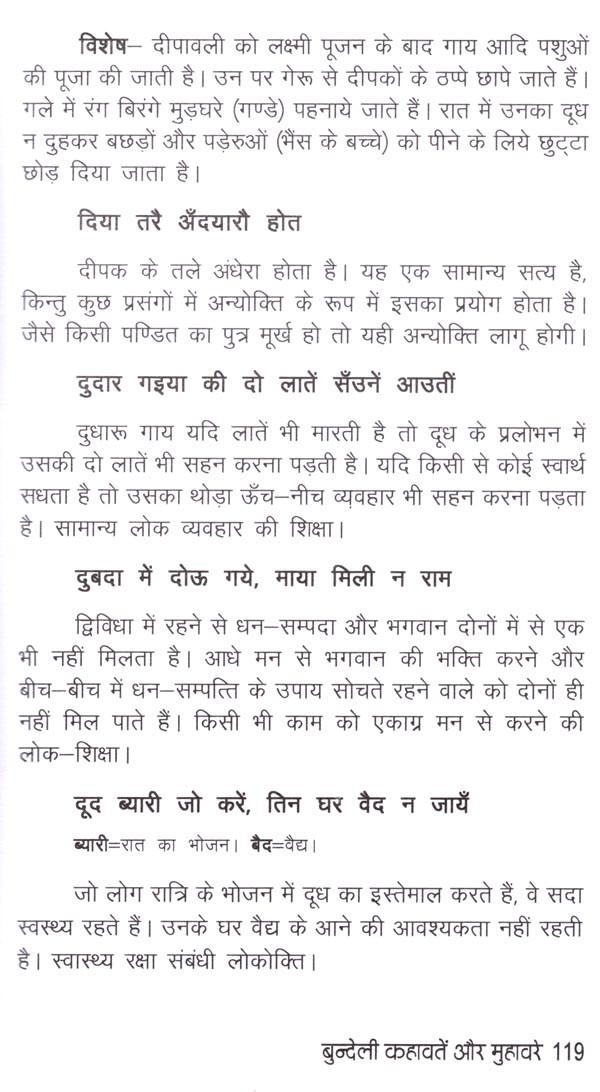 विशेष– दीपावली को लक्ष्मी पूजन के बाद गाय आदि पशुओं
की पूजा की जाती है। उन पर गेरू से दीपकों के ठप्पे छापे जाते हैं।
गले में रंग बिरंगे मुड़घरे (गण्डे) पहनाये जाते हैं। रात में उनका दूध
न दुहकर बछड़ों और पड़ेरुओं (भैंस के बच्चे) को पीने के लिये छुट्टा
छोड़ दिया जाता है।
दिया तरै अँदयारौ होत
दीपक के तले अंधेरा होता है। यह एक सामान्य सत्य है,
किन्तु कुछ प्रसंगों में अन्योक्ति के रूप में इसका प्रयोग होता है।
जैसे किसी पण्डित का पुत्र मूर्ख हो तो यही अन्योक्ति लागू होगी।
दुदार गइया की दो लातें सँउनें आउतीं
दुधारू गाय यदि लातें भी मारती है तो दूध के प्रलोभन में
उसकी दो लातें भी सहन करना पड़ती है। यदि किसी से कोई स्वार्थ
सधता है तो उसका थोड़ा ऊँच–नीच व्यवहार भी सहन करना पड़ता
है। सामान्य लोक व्यवहार की शिक्षा।
दुबदा में दोऊ गये, माया मिली न राम
द्विविधा में रहने से धन–सम्पदा और भगवान दोनों में से एक
भी नहीं मिलता है। आधे मन से भगवान की भक्ति करने और
बीच–बीच में धन–सम्पत्ति के उपाय सोचते रहने वाले को दोनों ही
नहीं मिल पाते हैं। किसी भी काम को एकाग्र मन से करने की
लोक–शिक्षा।
दूद ब्यारी जो करें, तिन घर वैद न जायँ
ब्यारी=रात का भोजन। बैद=वैद्य।
जो लोग रात्रि के भोजन में दूध का इस्तेमाल करते हैं, वे सदा
स्वस्थ्य रहते हैं। उनके घर वैद्य के आने की आवश्यकता नहीं रहती
है। स्वास्थ्य रक्षा संबंधी लोकोक्ति।
बुन्देली कहावतें और मुहावरे 119